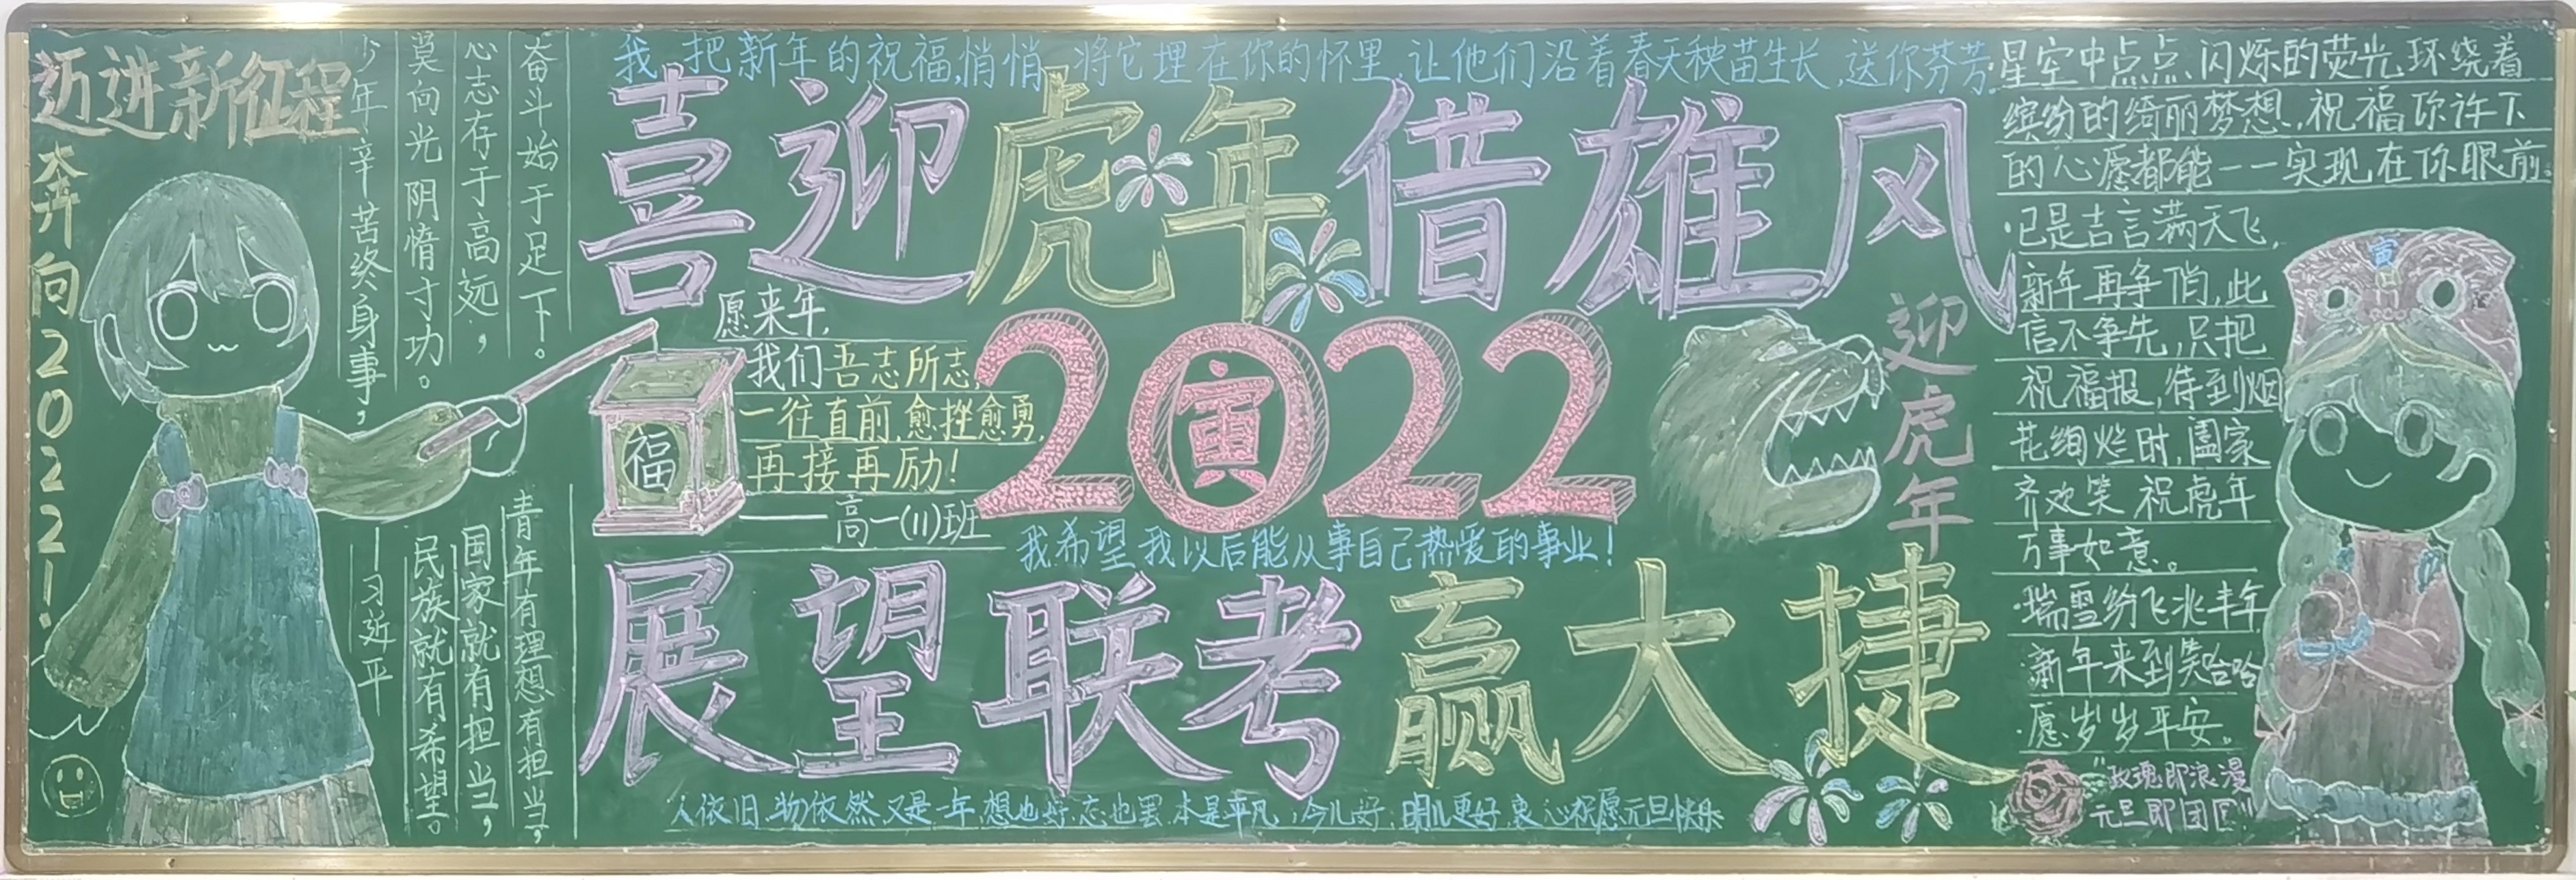 迈进新征程
奔向2022！
奋斗始于足下。
心志存于高远，
莫向光阴惰寸功。
少年辛苦终身事，
青年有理想有担当，
国家就有担当，
民族就有希望。
—习近平
我把新年的祝福,悄悄将它埋在你的怀里,让他们沿着春天秧苗生长,送你芬芳.
喜迎虎年借雄风
愿来年,
我们吾志所志,
一往直前,愈挫愈勇,
再接再励!
——高一(11)班
福
2022
寅
迎虎年
我希望我以后能从事自己热爱的事业!
展望联考赢大捷
人依旧,物依然,又是一年,想也好,忘也罢,本是平凡,今儿好,明儿更好,衷心祝愿元旦快乐
·星空中点点闪烁的荧光,环绕着
缤纷的绮丽梦想,祝福你许下
的心愿都能一一实现在你眼前.
·已是吉言满天飞,
新年再争俏,此
信不争先,只把
祝福报,待到烟
花绚烂时,阖家
齐欢笑 祝虎年
万事如意。
·瑞雪纷飞兆丰年
·新年来到笑哈哈
·愿岁岁平安。
寅
"玫瑰即浪漫
元旦即团圆"